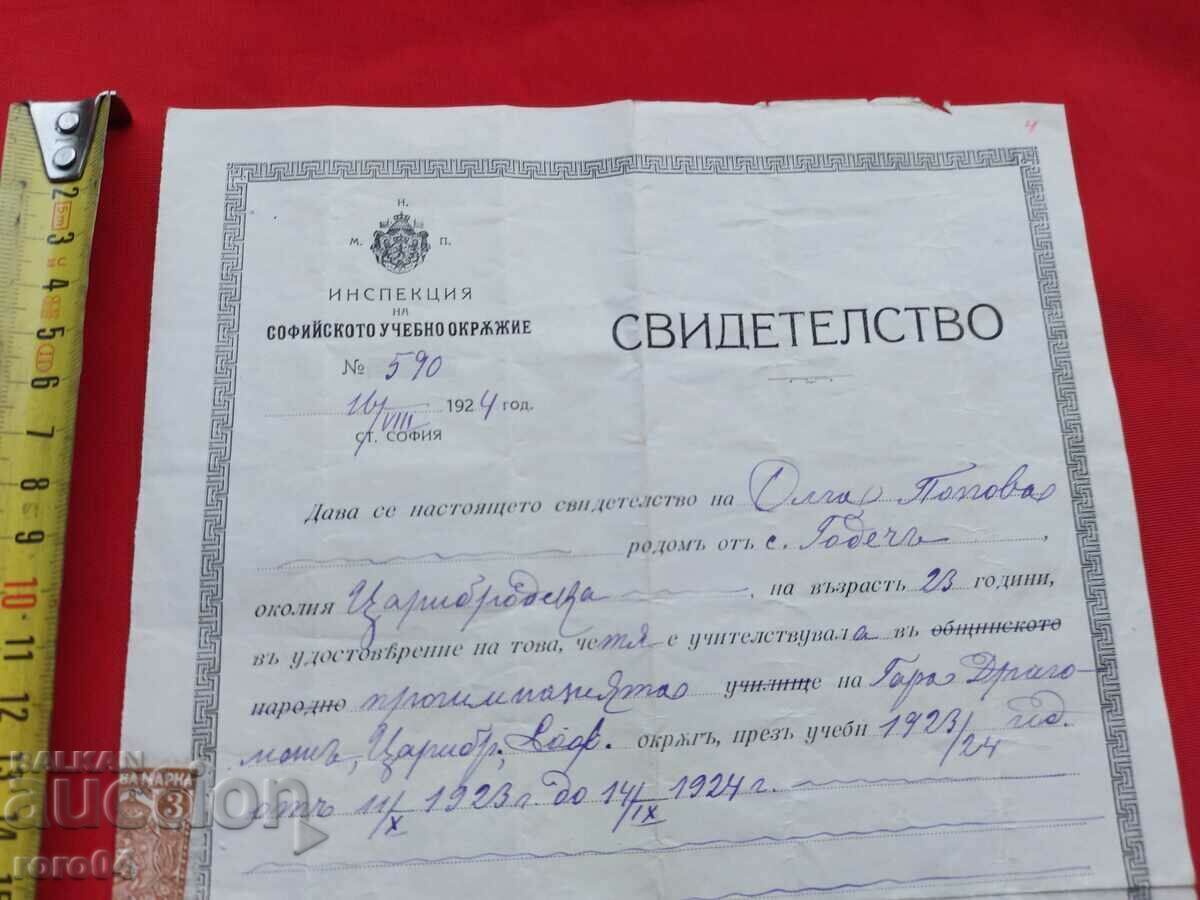 Н.
М. П.
ИНСПЕКЦИЯ
НА
СОФИЙСКОТО УЧЕБНО ОКРѪЖИЕ
№ 590
VIII 1924 год.
СТ. СОФИЯ
СВИДЕТЕЛСТВО
4
Дава се настоящето свидетелство на Олга Попова
родомъ отъ с. Годечъ,
околия Царибродска, на възрасть 23 години,
въ удостовѣрение на това, че тя е учителствувала въ общинското
народно прогимназията училище на Гара Драго-
манъ, Царибр., окрѫгъ, презъ учебн 1923/24 год.
отъ 11/X 1923 г. до 14/IX 1924 г.
2
3
4
5
6
7
8
9
10
11
12
13
14
BALKAN
auction
roro04
МАРКА
3